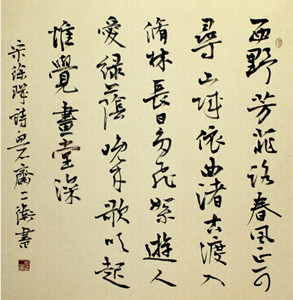 西野芳菲路春風正可
尋山城依曲渚古渡入
脩林長日多飛絮遊人
愛綠蔭晚來歌吹起
惟覺畫堂深
宋徐璣詩書